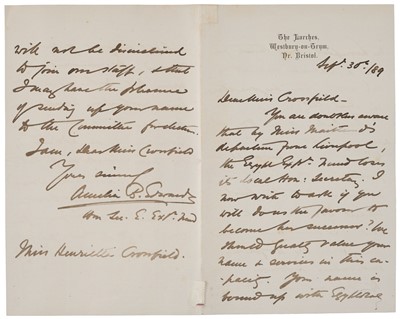 The Larches,
Westbury-on-Trym,
Nr. Bristol.
Sept. 30th/89
Dear Miss Cronfield -
You are doubtless aware
that by Miss
departure from Liverpool,
the Egypt Expn. Fund loses
its local Hon: Secretary. I
now write to ask if you
will do us the favour to
become her successor? We
should greatly value your
name & services in this ca-
pacity. Your name is
bound up with
will not be disinclined
to join our staff, & that
I may have the pleasure
of sending up your name
to the Committee for election.
I am, Dear Miss Cronfield
Yours sincerely
Amelia B. Edwards
Hon Sec. E. Exn. Fund
Miss Henrietta Cronfield.